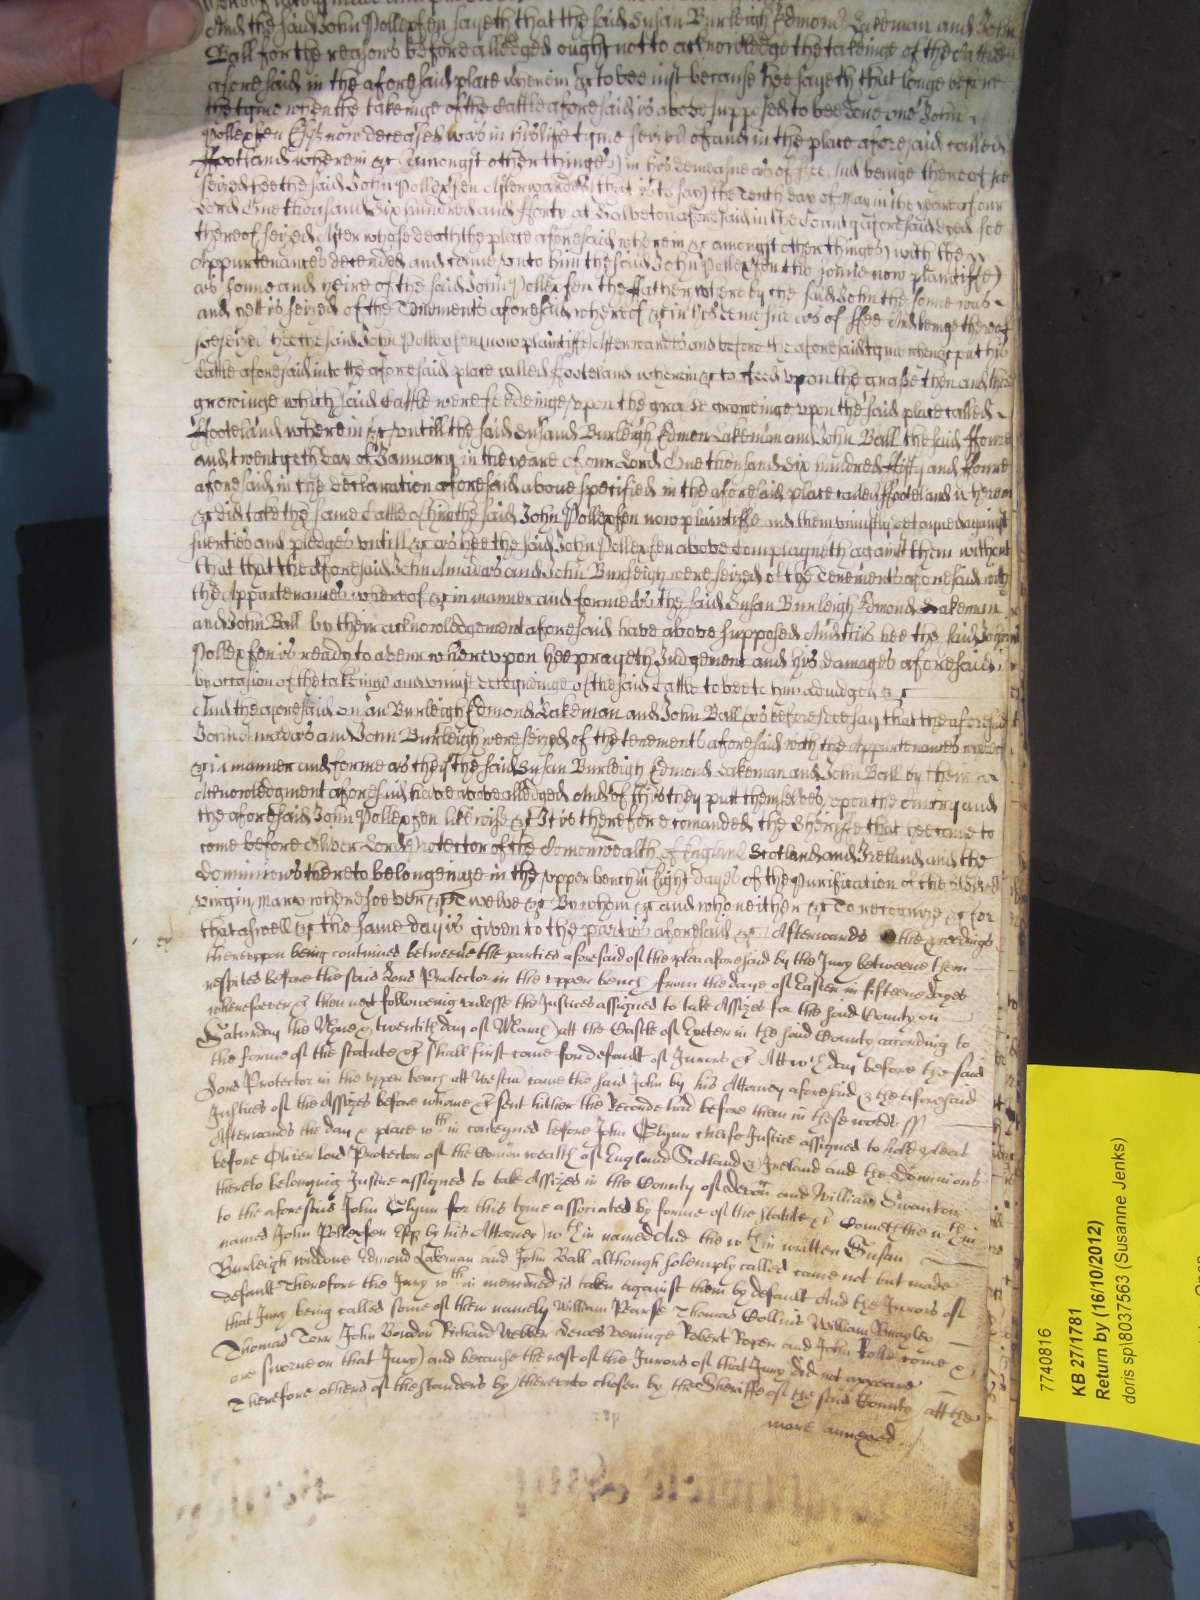 And the said John Pollexfen sayeth that the said Susan Burleigh Edmond Lakeman and John
Ball for the reasons before alledged ought not to acknowledge the takeinge of the Cattle
aforesaid in the aforesaid place wherein &c to bee iust because hee sayeth that longe before
the tyme when the takeinge of the Cattle aforesaid is above supposed to bee done one John
Pollexfen Esqr now deceased was in his life tyme seized of and in the place aforesaid called
ffootland wherein &c (amongst other thinges) in his demeasne as of fee And beinge thereof soe
seized hee the said John Pollexfen Afterwardes (that is to say) the Tenth day of May in the yeare of our
Lord One thousand Six hundred and fforty at aforesaid in the County aforesaid dyed soe
thereof seized After whose death the place aforesaid wherein &c amongst other thinges) with the
Appurtenances descended and came unto him the said John Pollexfen (the sonne now plaintiffe)
as sonne and heire of the said John Pollexfen the ffather whereby the said John the sonne was
and yett is seized of the Tenements aforesaid whereof &c in his demeasne as of ffee And beinge thereof
soe seized hee the said John Pollexfen (now plaintiffe) Afterwardes and before the aforesaid tyme when &c put his
Cattle aforesaid into the aforesaid place called ffooteland wherein &c to feed upon the grasse then and there
groweinge which said Cattle were feedeinge upon the grasse groweinge upon the said place called
ffooteland wherein &c untill the said Susand Burleigh Edmon Lakeman and John Ball the said ffoure
and twentyeth day of January in the yeare of our Lord One thousand Six hundred ffifty and ffoure
aforesaid in the declaration aforesaid above specified in the aforesaid place called ffooteland wherein
&c did take the same Cattle of him the said John Pollexfen now plaintiffe and them uniustly detayned against
suerties and pledges untill &c as hee the said John Pollexfen above complayneth against them without
that that the aforesaid John Amadas and John Burleigh were seized of the Tenements aforesaid with
the Appurtenances whereof &c in manner and forme as the said Susan Burleigh Edmond Lakeman
and John Ball by their acknowledgement aforesaid have above supposed And this hee the said John
Pollexfen is ready to averr whereupon hee prayeth Judgement and his damages aforesaid
by occasion of the takeinge and uniust deteyneinge of the said Cattle to bee to him adiudged &c
And the aforesaid Susan Burleigh Edmond Lakeman and John Ball as before doe say that the aforesaid
John Amadas and John Burleigh were seized of the tenements aforesaid with the Appurtenances whereof
&c in manner and forme as they the said Susan Burleigh Edmond Lakeman and John Ball by their
Acknowledgment aforesaid have above alledged And of this they putt themselves upon the Country and
the aforesaid John Pollexfen likewise &c It is therefore comanded the Sheriffe that hee come to
come before Oliver Lord Protector of the Comonwealth of England Scotland and Ireland and the
dominions thereto belongeinge in the upper bench in Eight dayes of the Purification of the blessed
virgin Mary wheresoever &c Twelve &c By whom &c and who neither &c To recognize &c for
that aswell &c the same day is given to the parties aforesaid &c Afterwards the proceedings
thereuppon being continued betweene the parties aforesaid of the plea aforesaid by the Jury betweene them
respited before the said Lord Protector in the upper bench from the daye of Easter in fifteene dayes
wheresoever &c then next following unlesse the Justices assigned to take Assizes for the said County on
Saturday the Nyne & twentith day of March att the Castle of Exeter in the said County according to
the forme of the statute &c shall first come for default of Jurors &c Att wch day before the said
Lord Protector in the upper bench att Westm came the said John by his Attorney aforesaid & the aforesaid
Justices of the Assizes before whome &c sent hither the Recorde had before them in these words ss
Afterwards the day & place wthin conteyned before John Glynn cheife Justice assigned to hold pleas
before Oliver lord Protector of the Comonwealth of England Scotland & Ireland and the Dominions
thereto belonging Justice assigned to take Assizes in the County of devon and William Swanton
to the aforesaid John Glynn for this tyme associated by forme of the statute &c Cometh the wthin
named John Pollexfen Esqr by his Attorney wthin named And the wthin written Susan
Burleigh widdowe Edmond Lakeman and John Ball although solemply called came not but made
default Therefore the Jury wthin menconed is taken against them by default And the Jurors of
that Jury being called some of them namely William Pearse Thomas Collins William Bragley
Thomas Torr John Bowdon Richard Webber Robert Roper and John Rolle come &
are sworne on that Jury) and because the rest of the Jurors of that Jury did not appeare
Therefore others of the standers by thereto chosen by the Sheriffe of the said County att the
more annexed
7740816
KB 27/1781
Return by (16/10/2012)
doris sp\8037563 (Susanne Jenks)
Open